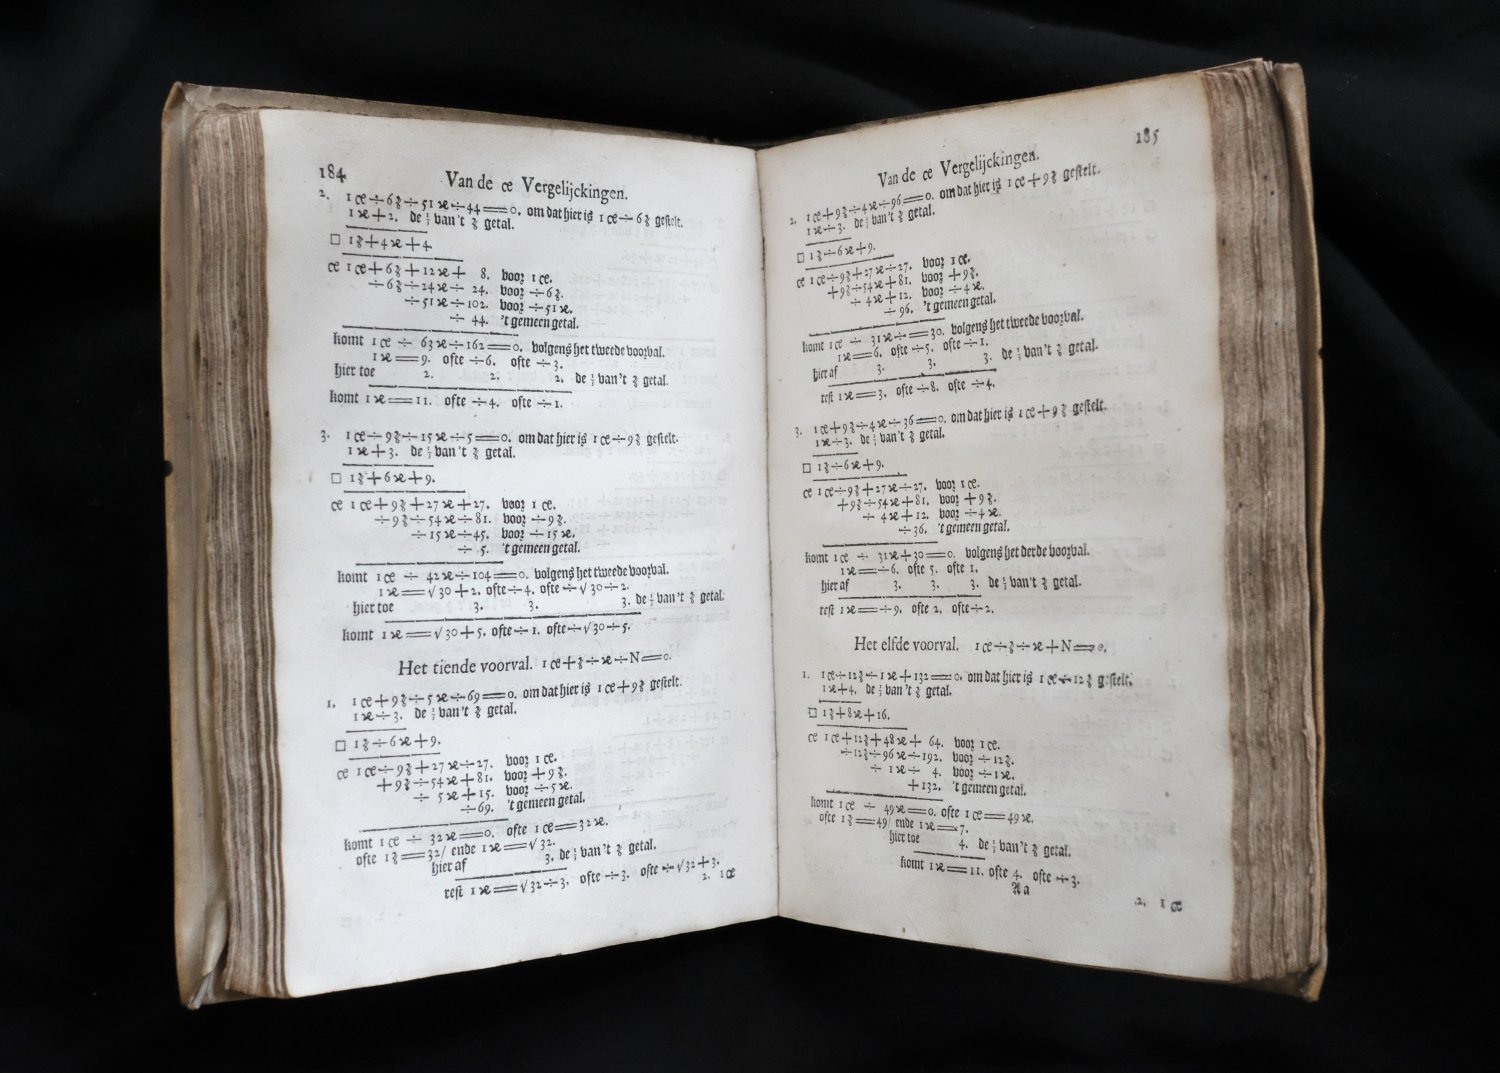 184
Van de ce Vergelijckingen.
2. 1 ce ÷ 6 ʒ ÷ 51 ϰ ÷ 44 == 0. om dat hier is 1 ce ÷ 6 ʒ gestelt.
1 ϰ + 2. de ⅓ van 't ʒ getal.
□ 1 ʒ + 4 ϰ + 4.
ce 1 ce + 6 ʒ + 12 ϰ + 8. voor 1 ce.
÷ 6 ʒ ÷ 24 ϰ ÷ 24. voor ÷ 6 ʒ.
÷ 51 ϰ ÷ 102. voor ÷ 51 ϰ.
÷ 44. 't gemeen getal.
komt 1 ce ÷ 63 ϰ ÷ 162 == 0. volgens het tweede voorval.
1 ϰ == 9. ofte ÷ 6. ofte ÷ 3.
hier toe 2. 2. 2. de ⅓ van 't ʒ getal.
komt 1 ϰ == 11. ofte ÷ 4. ofte ÷ 1.
3. 1 ce ÷ 9 ʒ ÷ 15 ϰ ÷ 5 == 0. om dat hier is 1 ce ÷ 9 ʒ gestelt.
1 ϰ + 3. de ⅓ van 't ʒ getal.
□ 1 ʒ + 6 ϰ + 9.
ce 1 ce + 9 ʒ + 27 ϰ + 27. voor 1 ce.
÷ 9 ʒ ÷ 54 ϰ ÷ 81. voor ÷ 9 ʒ.
÷ 15 ϰ ÷ 45. voor ÷ 15 ϰ.
÷ 5. 't gemeen getal.
komt 1 ce ÷ 42 ϰ ÷ 104 == 0. volgens het tweede voorval.
1 ϰ == √ 30 + 2. ofte ÷ 4. ofte ÷ √ 30 ÷ 2.
hier toe 3. 3. 3. de ⅓ van 't ʒ getal.
komt 1 ϰ == √ 30 + 5. ofte ÷ 1. ofte ÷ √ 30 ÷ 5.
Het tiende voorval. 1 ce + ʒ ÷ ϰ ÷ N == 0.
1. 1 ce + 9 ʒ ÷ 5 ϰ ÷ 69 == 0. om dat hier is 1 ce + 9 ʒ gestelt.
1 ϰ ÷ 3. de ⅓ van 't ʒ getal.
□ 1 ʒ ÷ 6 ϰ + 9.
ce 1 ce ÷ 9 ʒ + 27 ϰ ÷ 27. voor 1 ce.
+ 9 ʒ ÷ 54 ϰ + 81. voor + 9 ʒ.
÷ 5 ϰ + 15. voor ÷ 5 ϰ.
÷ 69. 't gemeen getal.
komt 1 ce ÷ 32 ϰ == 0. ofte 1 ce == 32 ϰ.
ofte 1 ʒ == 32/ ende 1 ϰ == √ 32.
hier af 3. de ⅓ van 't ʒ getal.
rest 1 ϰ == √ 32 ÷ 3. ofte ÷ 3. ofte ÷ √ 32 + 3.
2. 1 ce
185
Van de ce Vergelijckingen.
2. 1 ce + 9 ʒ ÷ 4 ϰ ÷ 96 == 0. om dat hier is 1 ce + 9 ʒ gestelt.
1 ϰ ÷ 3. de ⅓ van 't ʒ getal.
□ 1 ʒ ÷ 6 ϰ + 9.
ce 1 ce ÷ 9 ʒ + 27 ϰ ÷ 27. voor 1 ce.
+ 9 ʒ ÷ 54 ϰ + 81. voor + 9 ʒ.
÷ 4 ϰ + 12. voor ÷ 4 ϰ.
÷ 96. 't gemeen getal.
komt 1 ce ÷ 31 ϰ ÷ == 30. volgens het tweede voorval.
1 ϰ == 6. ofte ÷ 5. ofte ÷ 1.
hier af 3. 3. 3. de ⅓ van 't ʒ getal.
rest 1 ϰ == 3. ofte ÷ 8. ofte ÷ 4.
3. 1 ce + 9 ʒ ÷ 4 ϰ ÷ 36 == 0. om dat hier is 1 ce + 9 ʒ gestelt.
1 ϰ ÷ 3. de ⅓ van 't ʒ getal.
□ 1 ʒ ÷ 6 ϰ + 9.
ce 1 ce ÷ 9 ʒ + 27 ϰ ÷ 27. voor 1 ce.
+ 9 ʒ ÷ 54 ϰ + 81. voor + 9 ʒ.
÷ 4 ϰ + 12. voor ÷ 4 ϰ.
÷ 36. 't gemeen getal.
komt 1 ce ÷ 31 ϰ + 30 == 0. volgens het derde voorval.
1 ϰ == ÷ 6. ofte 5. ofte 1.
hier af 3. 3. 3. de ⅓ van 't ʒ getal.
rest 1 ϰ == ÷ 9. ofte 2. ofte ÷ 2.
Het elfde voorval. 1 ce ÷ ʒ ÷ ϰ + N == 0.
1. 1 ce ÷ 12 ʒ ÷ 1 ϰ + 132 == 0. om dat hier is 1 ce ÷ 12 ʒ gestelt.
1 ϰ + 4. de ⅓ van 't ʒ getal.
□ 1 ʒ + 8 ϰ + 16.
ce 1 ce + 12 ʒ + 48 ϰ + 64. voor 1 ce.
÷ 12 ʒ ÷ 96 ϰ ÷ 192. voor ÷ 12 ʒ.
÷ 1 ϰ ÷ 4. voor ÷ 1 ϰ.
+ 132. 't gemeen getal.
komt 1 ce ÷ 49 ϰ == 0. ofte 1 ce == 49 ϰ.
ofte 1 ʒ == 49/ ende 1 ϰ == 7.
hier toe 4. de ⅓ van 't ʒ getal.
komt 1 ϰ == 11. ofte 4. ofte ÷ 3.
Aa
2. 1 ce